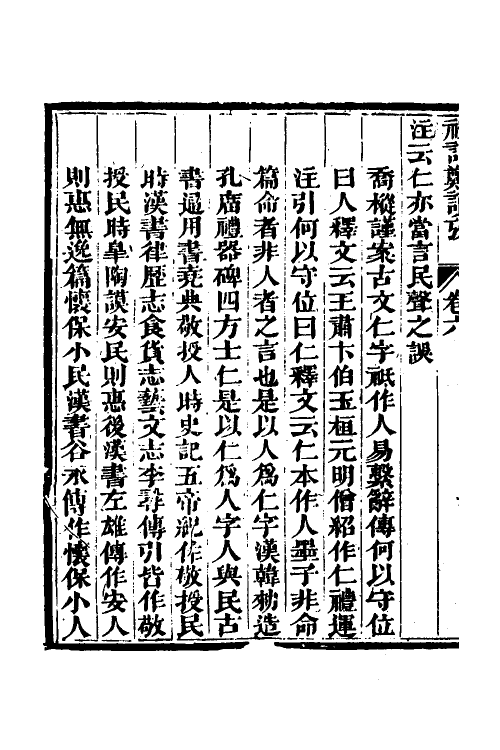 禮記鄭讀考 卷六
注云仁亦當言民聲之誤
喬樅謹案古文仁字祇作人易繫辭傳何以守位
曰人釋文云王肅卞伯玉桓元明僧紹作仁禮運
注引何以守位曰仁釋文云仁本作人墨子非命
篇命者非人者之言也是以人爲仁字漢韓勑造
孔廟禮器碑四方士仁是以仁爲人字人與民古
書通用書堯典敬授人時史記五帝紀作敬授民
時漢書律歷志食貨志藝文志李尋傳引皆作敬
授民時皐陶謨安民則惠後漢書左雄傳作安人
則惠無逸篇懷保小民漢書谷永傳作懷保小人